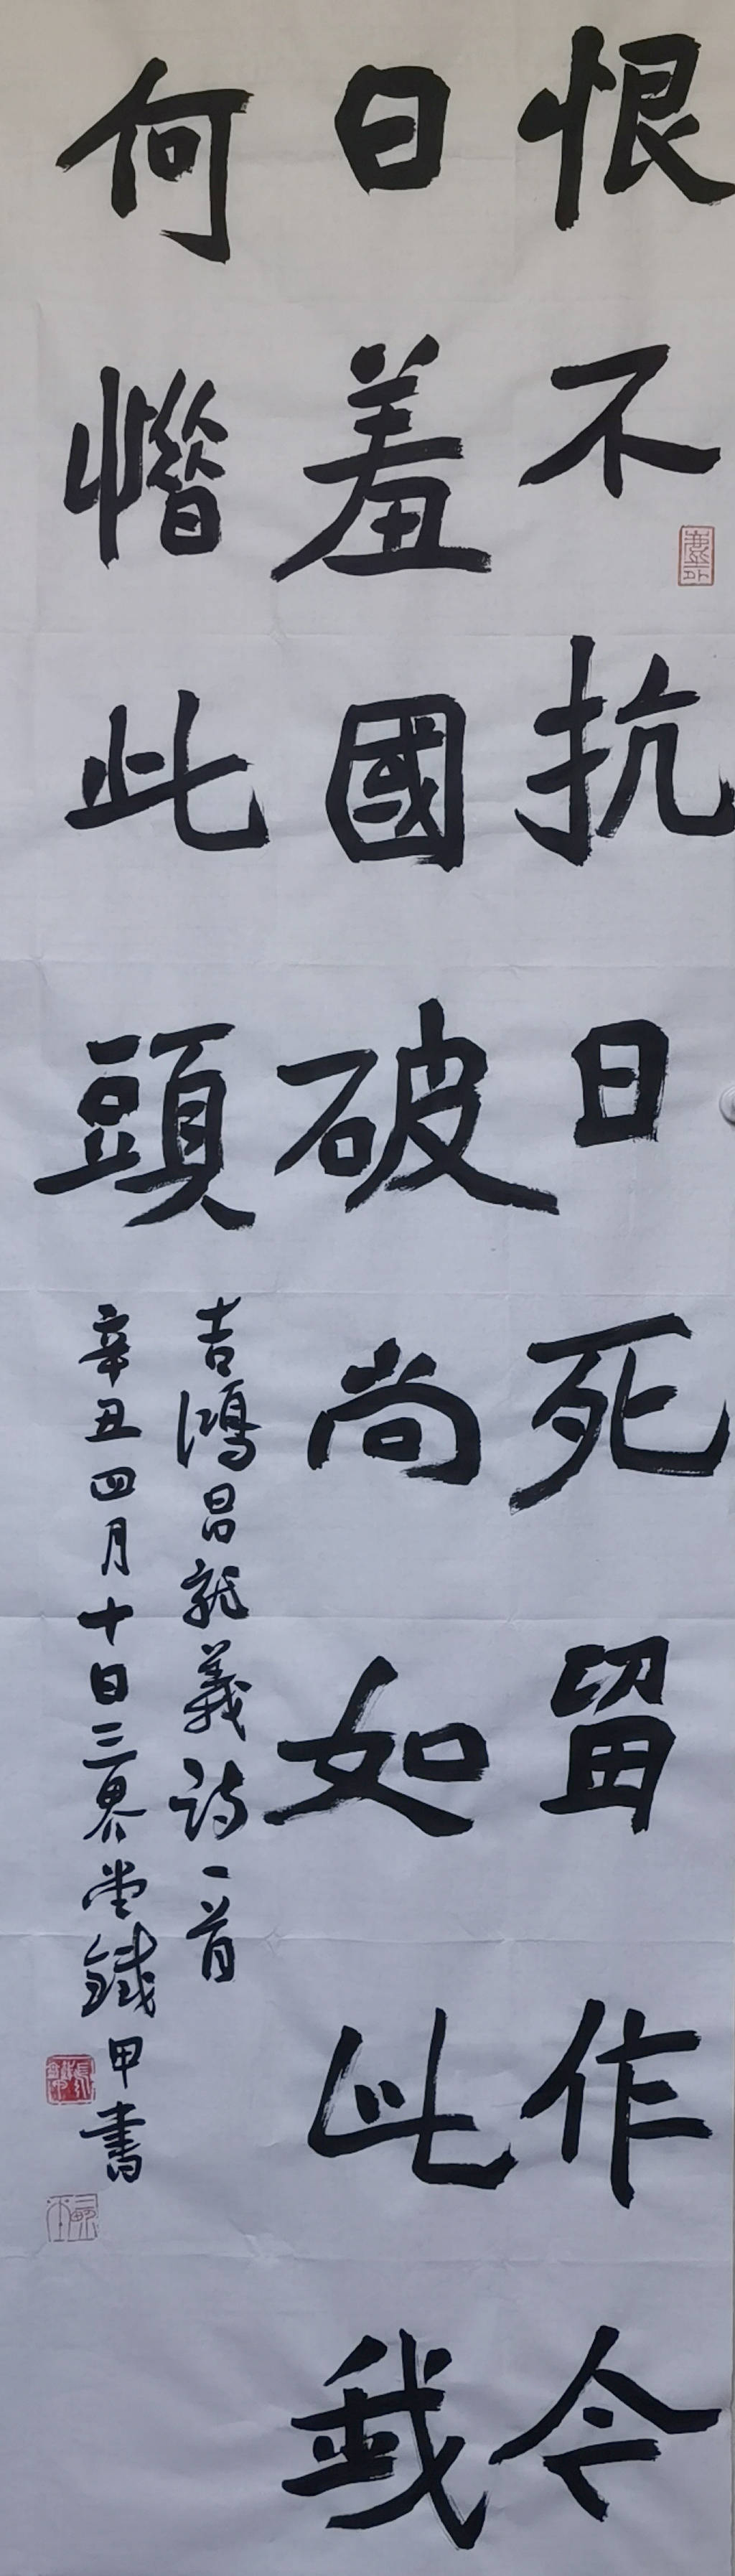 恨不抗日死留作今
日羞國破尚如此我
何惜此頭
吉鴻昌就義詩一首
辛丑四月十日三界堂鐵甲書